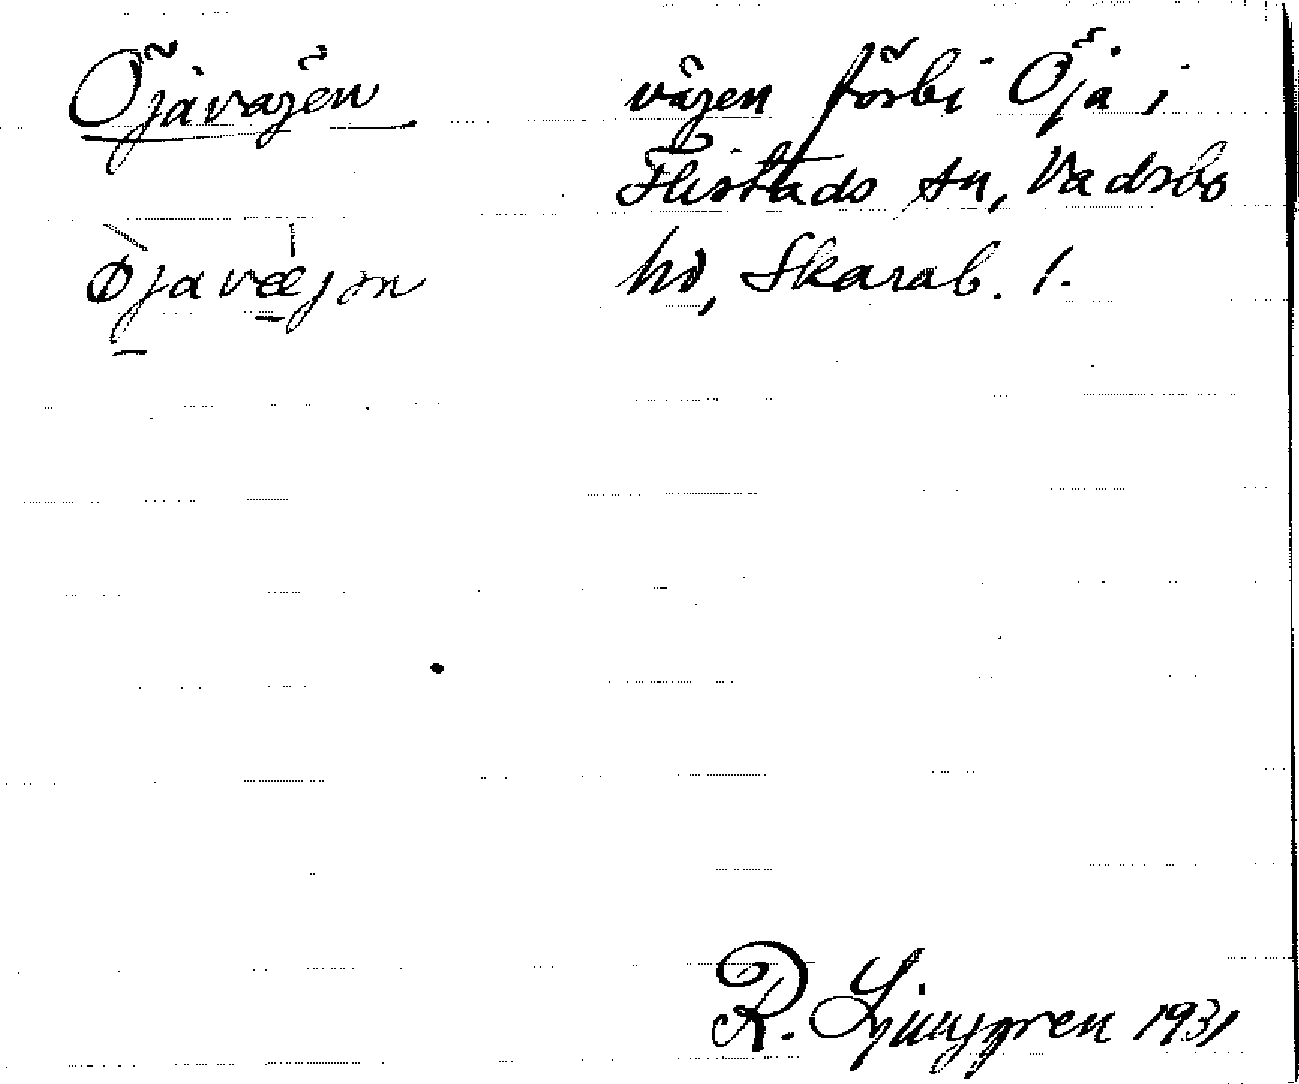 Öjavägen
vägen förbi Öja i
Flistads sn, Vadsbo
hd, Skarab. l.
R. Ljunggren 1931